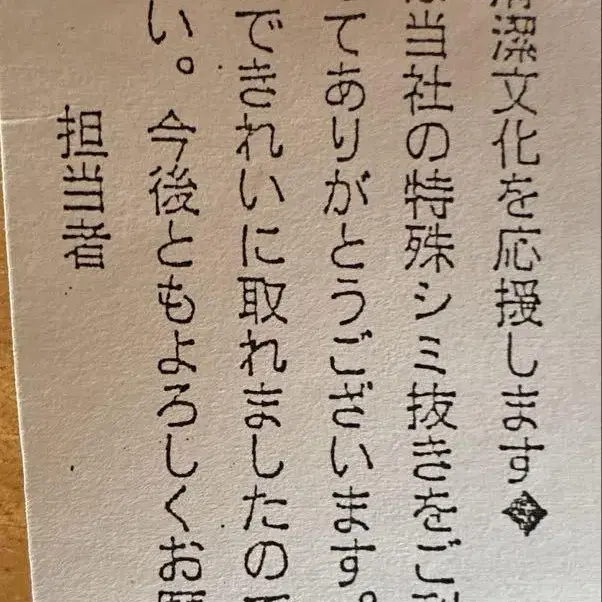 清潔文化を応援します◆
当社の特殊シミ抜きをご
てありがとうございます。
できれいに取れましたの
い。今後ともよろしくお願
担当者